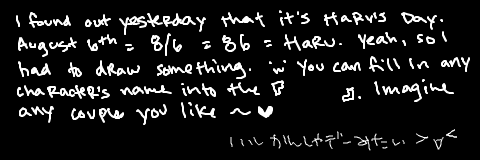 I found out yesterday that it's Haru's Day.
August 6th = 8/6 = 86 = Haru. Yeah, so I
had to draw something. :w: You can fill in any
character's name into the 『 』. Imagine
any couple you like ~ ♥